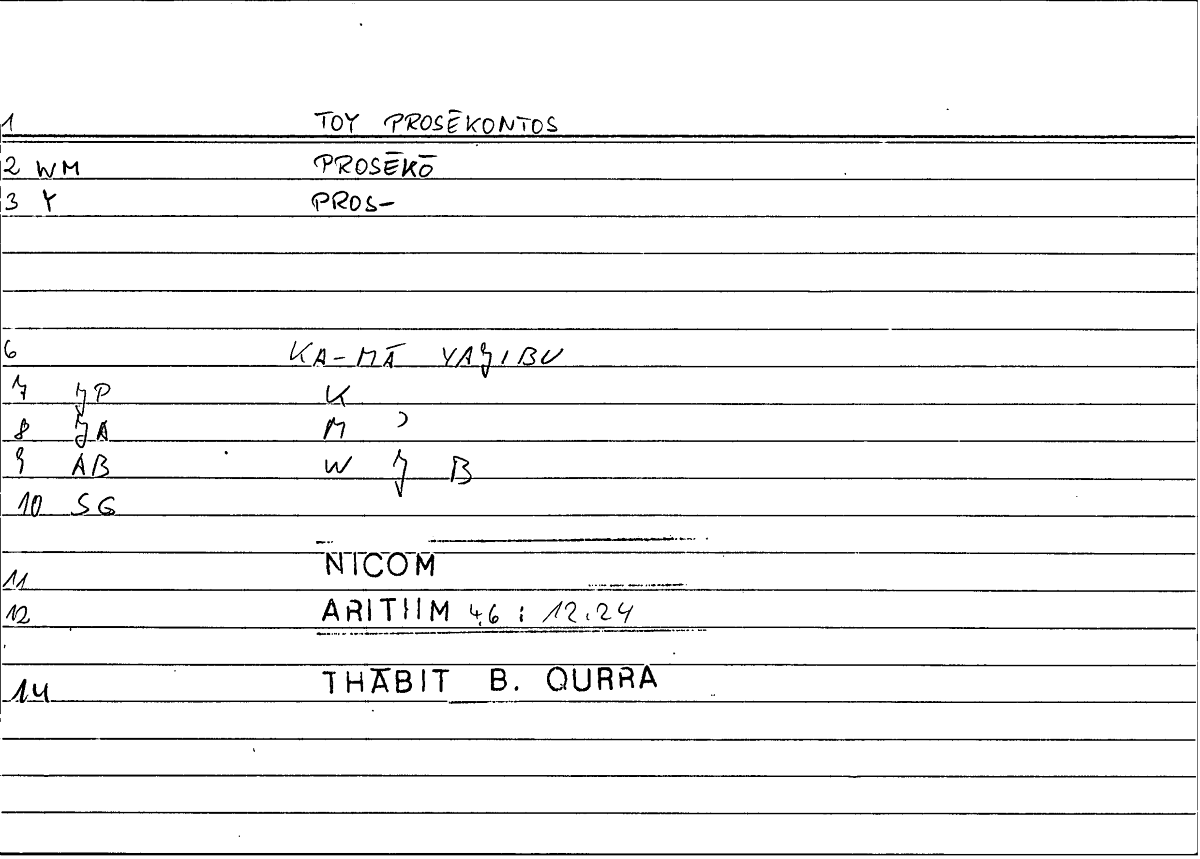 1 TOY PROSĒKONTOS
2 WM PROSĒKŌ
3 Y PROS-
6 KA-MĀ YAǧIBU
7 ǧP K
8 ǧA M ʾ
9 AB W ǧ B
10 SG
11 NICOM
12 ARITHM 4,6 : 12.24
14 THĀBIT B. QURRA